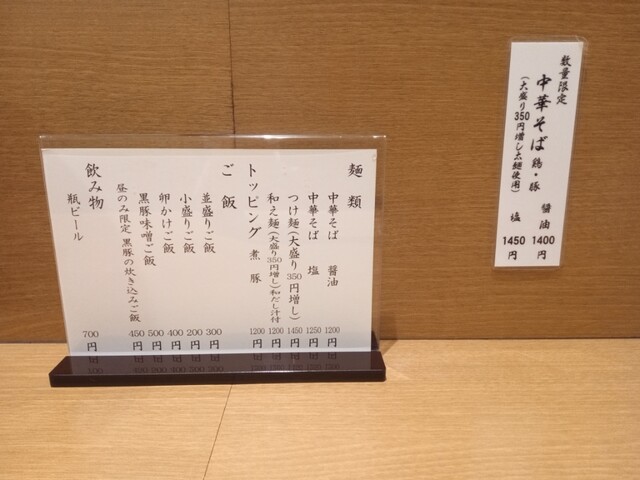 麺類
中華そば 醤油 1200円
中華そば 塩 1250円
つけ麺(大盛り350円増し) 1450円
和え麺(大盛り350円増し)和だし汁付 1200円
トッピング 煮豚 1200円
ご飯
並盛りご飯 300円
小盛りご飯 200円
卵かけご飯 400円
黒豚味噌ご飯 500円
昼のみ限定 黒豚の炊き込みご飯 450円
飲み物
瓶ビール 700円
数量限定
中華そば 鶏・豚 醤油 1400円
(大盛り350円増し太麺使用) 塩 1450円